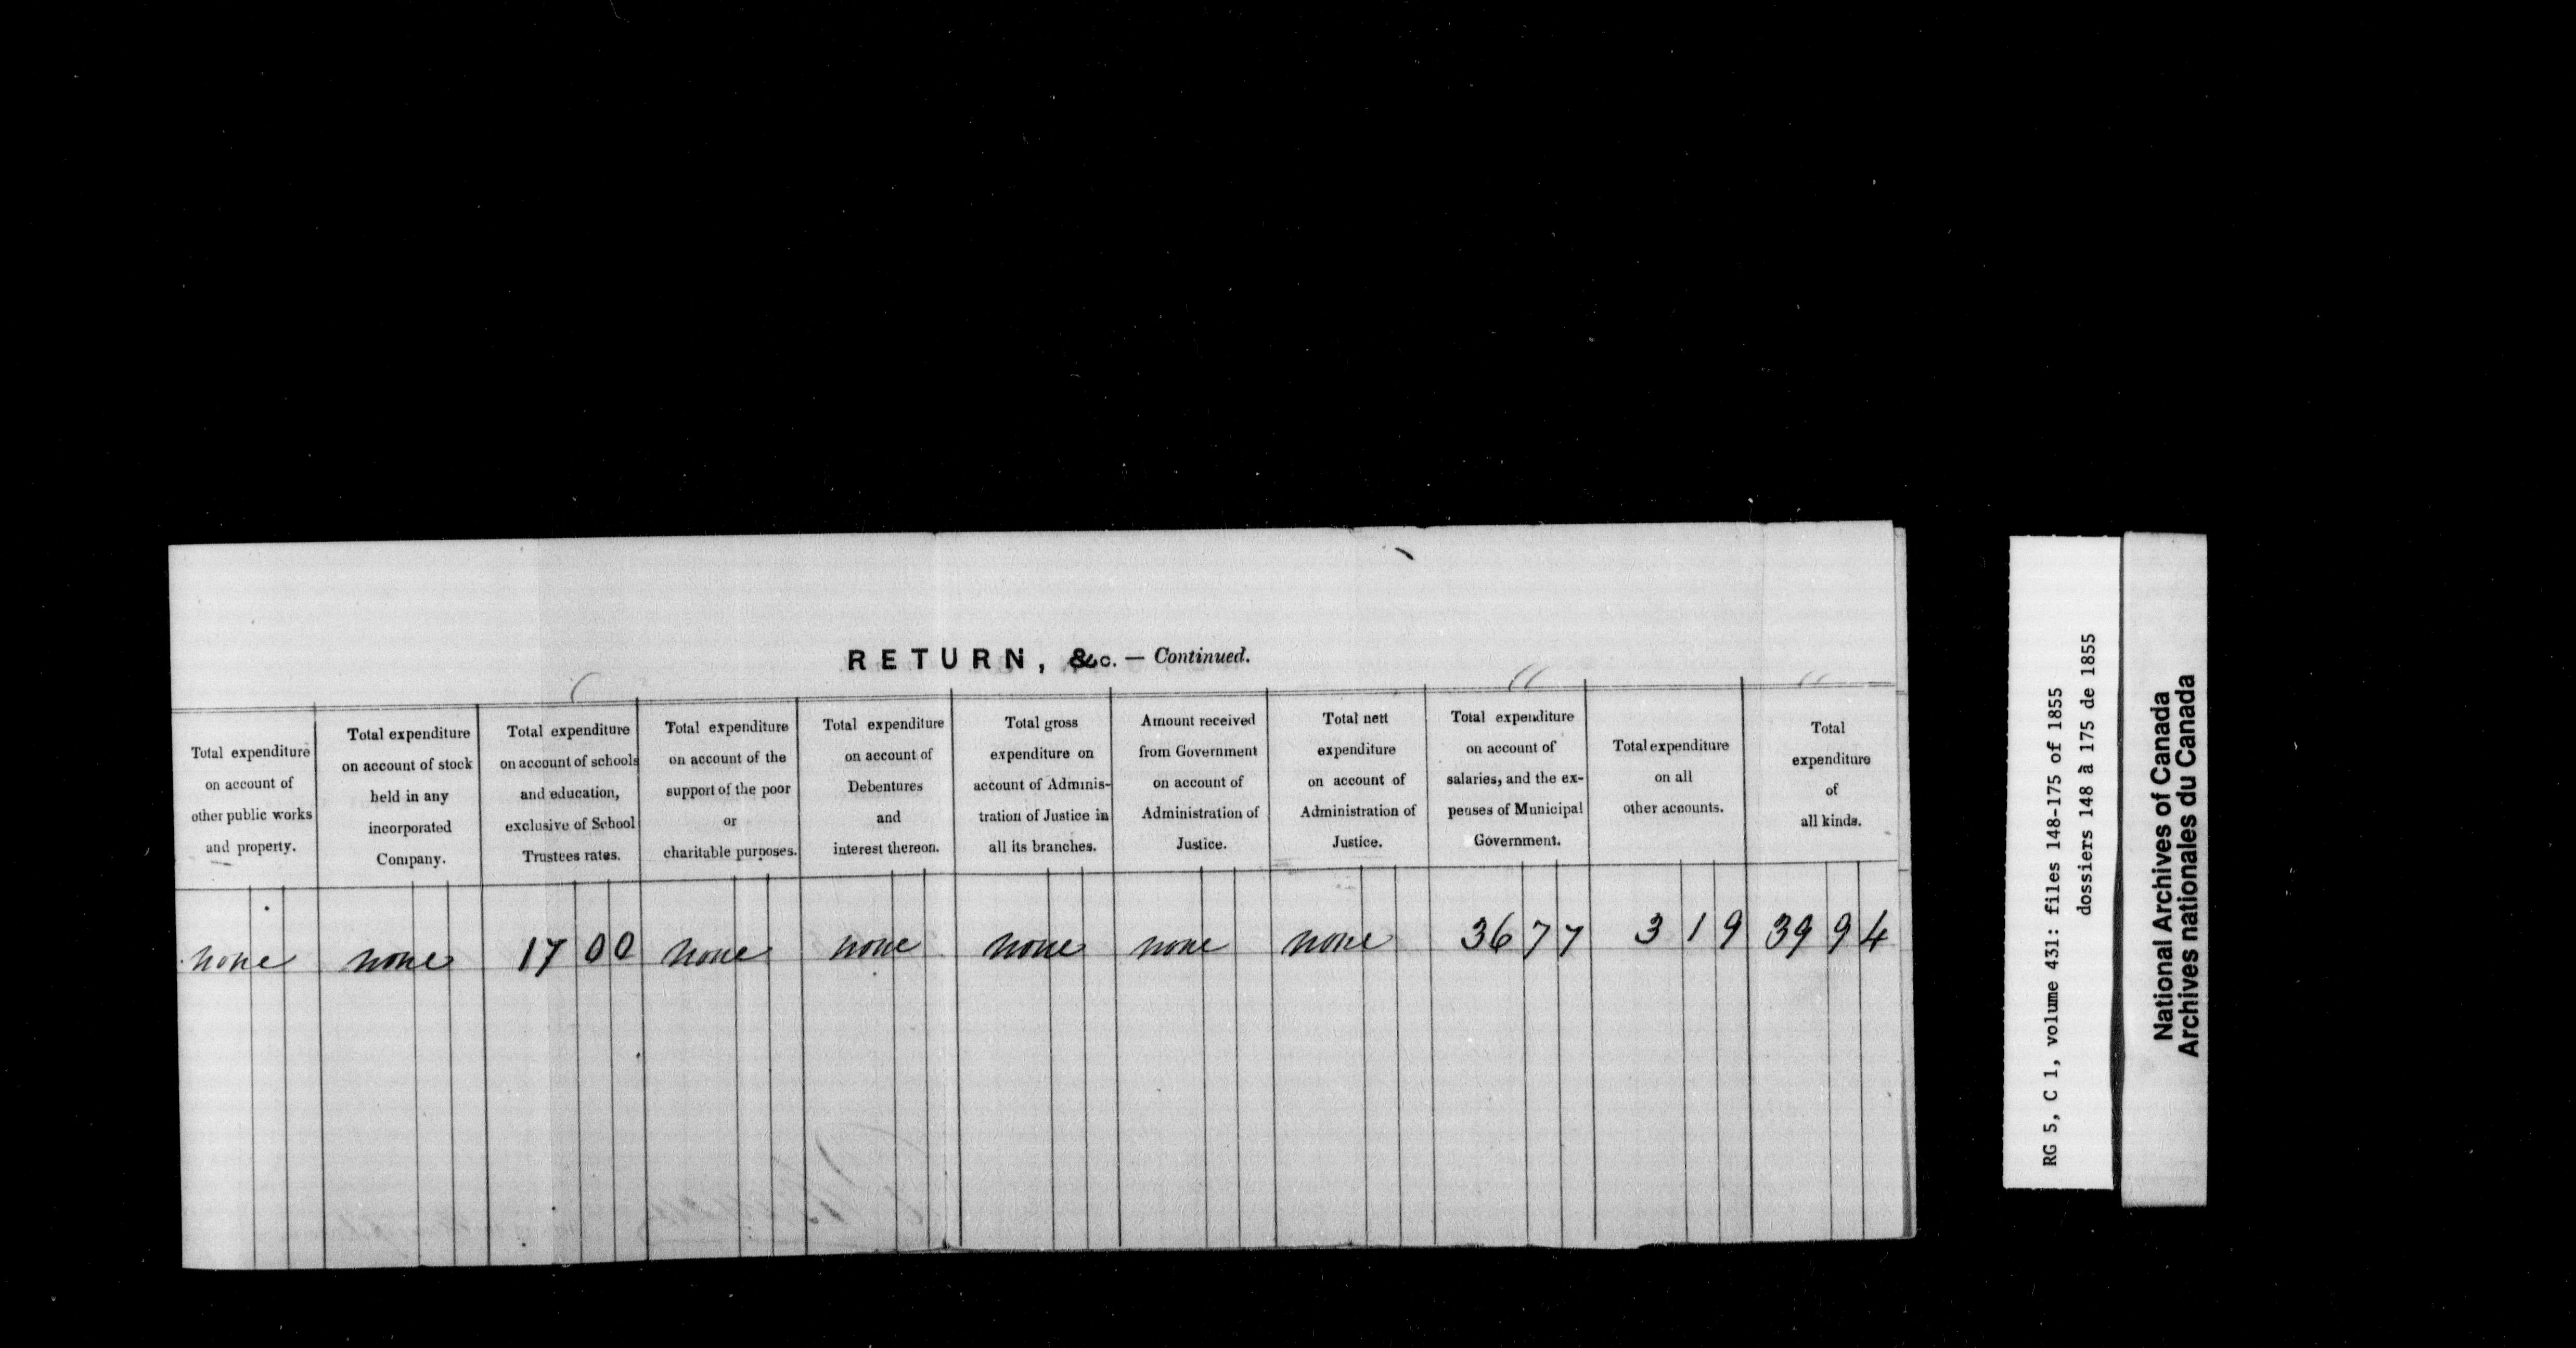 RETURN, &c. — Continued.
Total expenditure
on account of
other public works
and property.
Total expenditure
on account of stock
held in any
incorporated
Company.
Total expenditure
on account of schools
and education,
exclusive of School
Trustees rates.
Total expenditure
on account of the
support of the poor
or
charitable purposes.
Total expenditure
on account of
Debentures
and
interest thereon.
Total gross
expenditure on
account of Adminis-
tration of Justice in
all its branches.
Amount received
from Government
on account of
Administration of
Justice.
Total nett
expenditure
on account of
Administration of
Justice.
Total expenditure
on account of
salaries, and the ex-
penses of Municipal
Government.
Total expenditure
on all
other accounts.
Total
expenditure
of
all kinds.
none none 17 0 0 none none none none none 36 7 7 3 1 9 39 9 4
RG 5, C 1, volume 431: files 148-175 of 1855
dossiers 148 à 175 de 1855
National Archives of Canada
Archives nationales du Canada